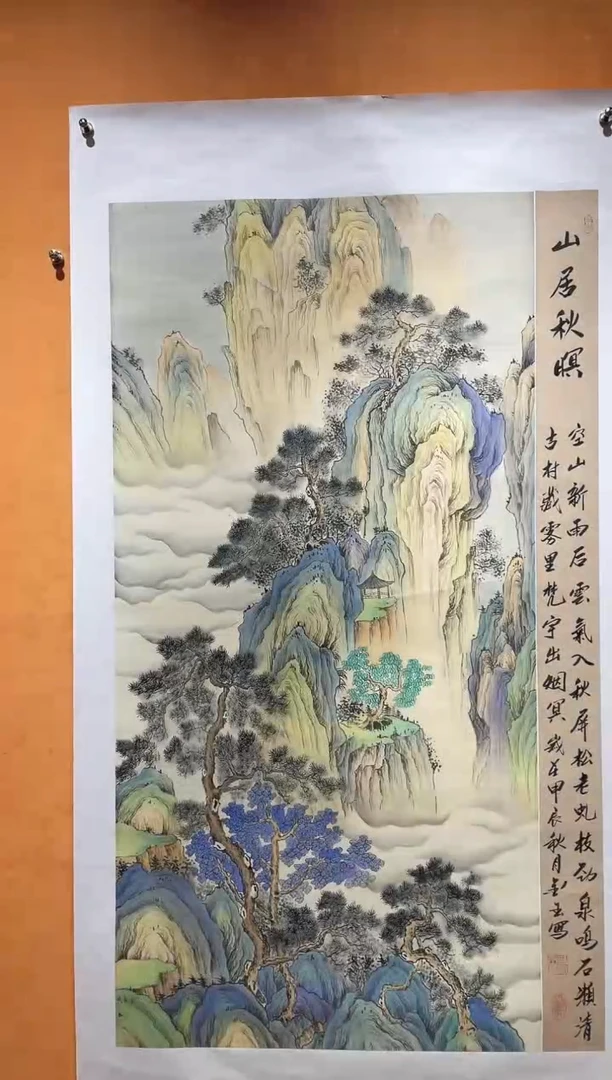 山居秋暝
空山新雨后雲氣入秋屏松老虬枝劲泉鳴石瀨清
古村藏雾里梵宇出烟冥 歲在甲辰秋月 寫